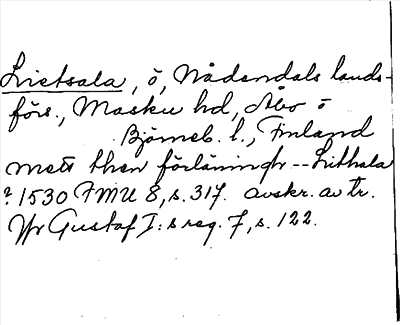 Lietsala, ö, Nådendals lands-
förs., Masku hd, Åbo o
Björneb. l., Finland
mett then förläningh -- Lithala
? 1530 FMU 8, s. 317. avskr. av tr.
Jfr Gustaf I:s reg. 7, s. 122.